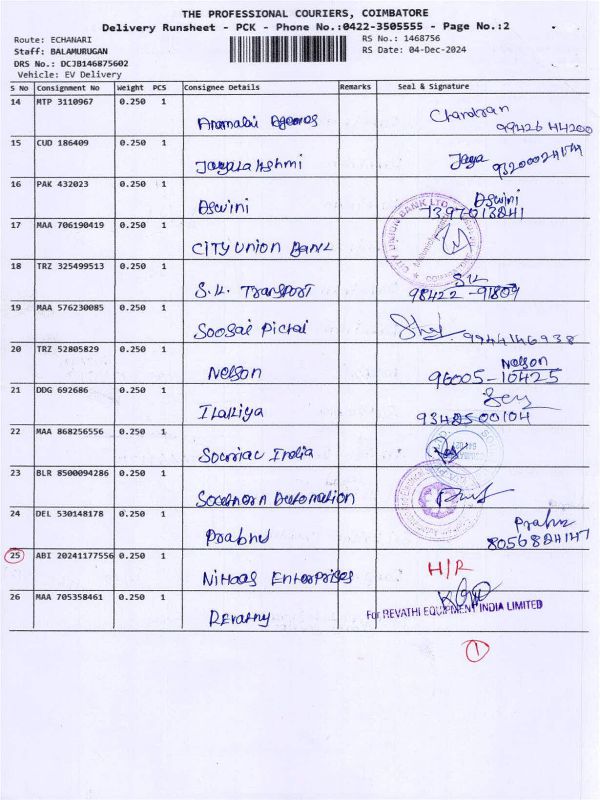 THE PROFESSIONAL COURIERS, COIMBATORE
Delivery Runsheet - PCK - Phone No.:0422-3505555 - Page No.:2
Route: ECHANARI RS No.: 1468756
Staff: BALAMURUGAN RS Date: 04-Dec-2024
DRS No.: DCJB146875602
Vehicle: EV Delivery
S No Consignment No Weight PCS Consignee Details Remarks Seal & Signature
14 MTP 3110967 0.250 1 Chandran
99426 44200
15 CUD 186409 0.250 1 Jayalakshmi Jaya
16 PAK 432023 0.250 1 Aswini Aswini
17 MAA 706190419 0.250 1 City Union Bank CITY UNION BANK LTD
18 TRZ 325499513 0.250 1 S.K. Transport SK
98422-91809
19 MAA 576230085 0.250 1 Soosai Pichai 9944146938
20 TRZ 52805829 0.250 1 Nelson Nelson
96005-10425
21 DDG 692686 0.250 1 Ilakiya
9342500104
22 MAA 868256556 0.250 1 India
23 BLR 8500094286 0.250 1 Southern Automation
24 DEL 530148178 0.250 1 Prabhu Prabhu
8056824147
25 ABI 20241177556 0.250 1 Enterprises H/R
26 MAA 705358461 0.250 1 Revathy
For REVATHI EQUIPMENT INDIA LIMITED
1